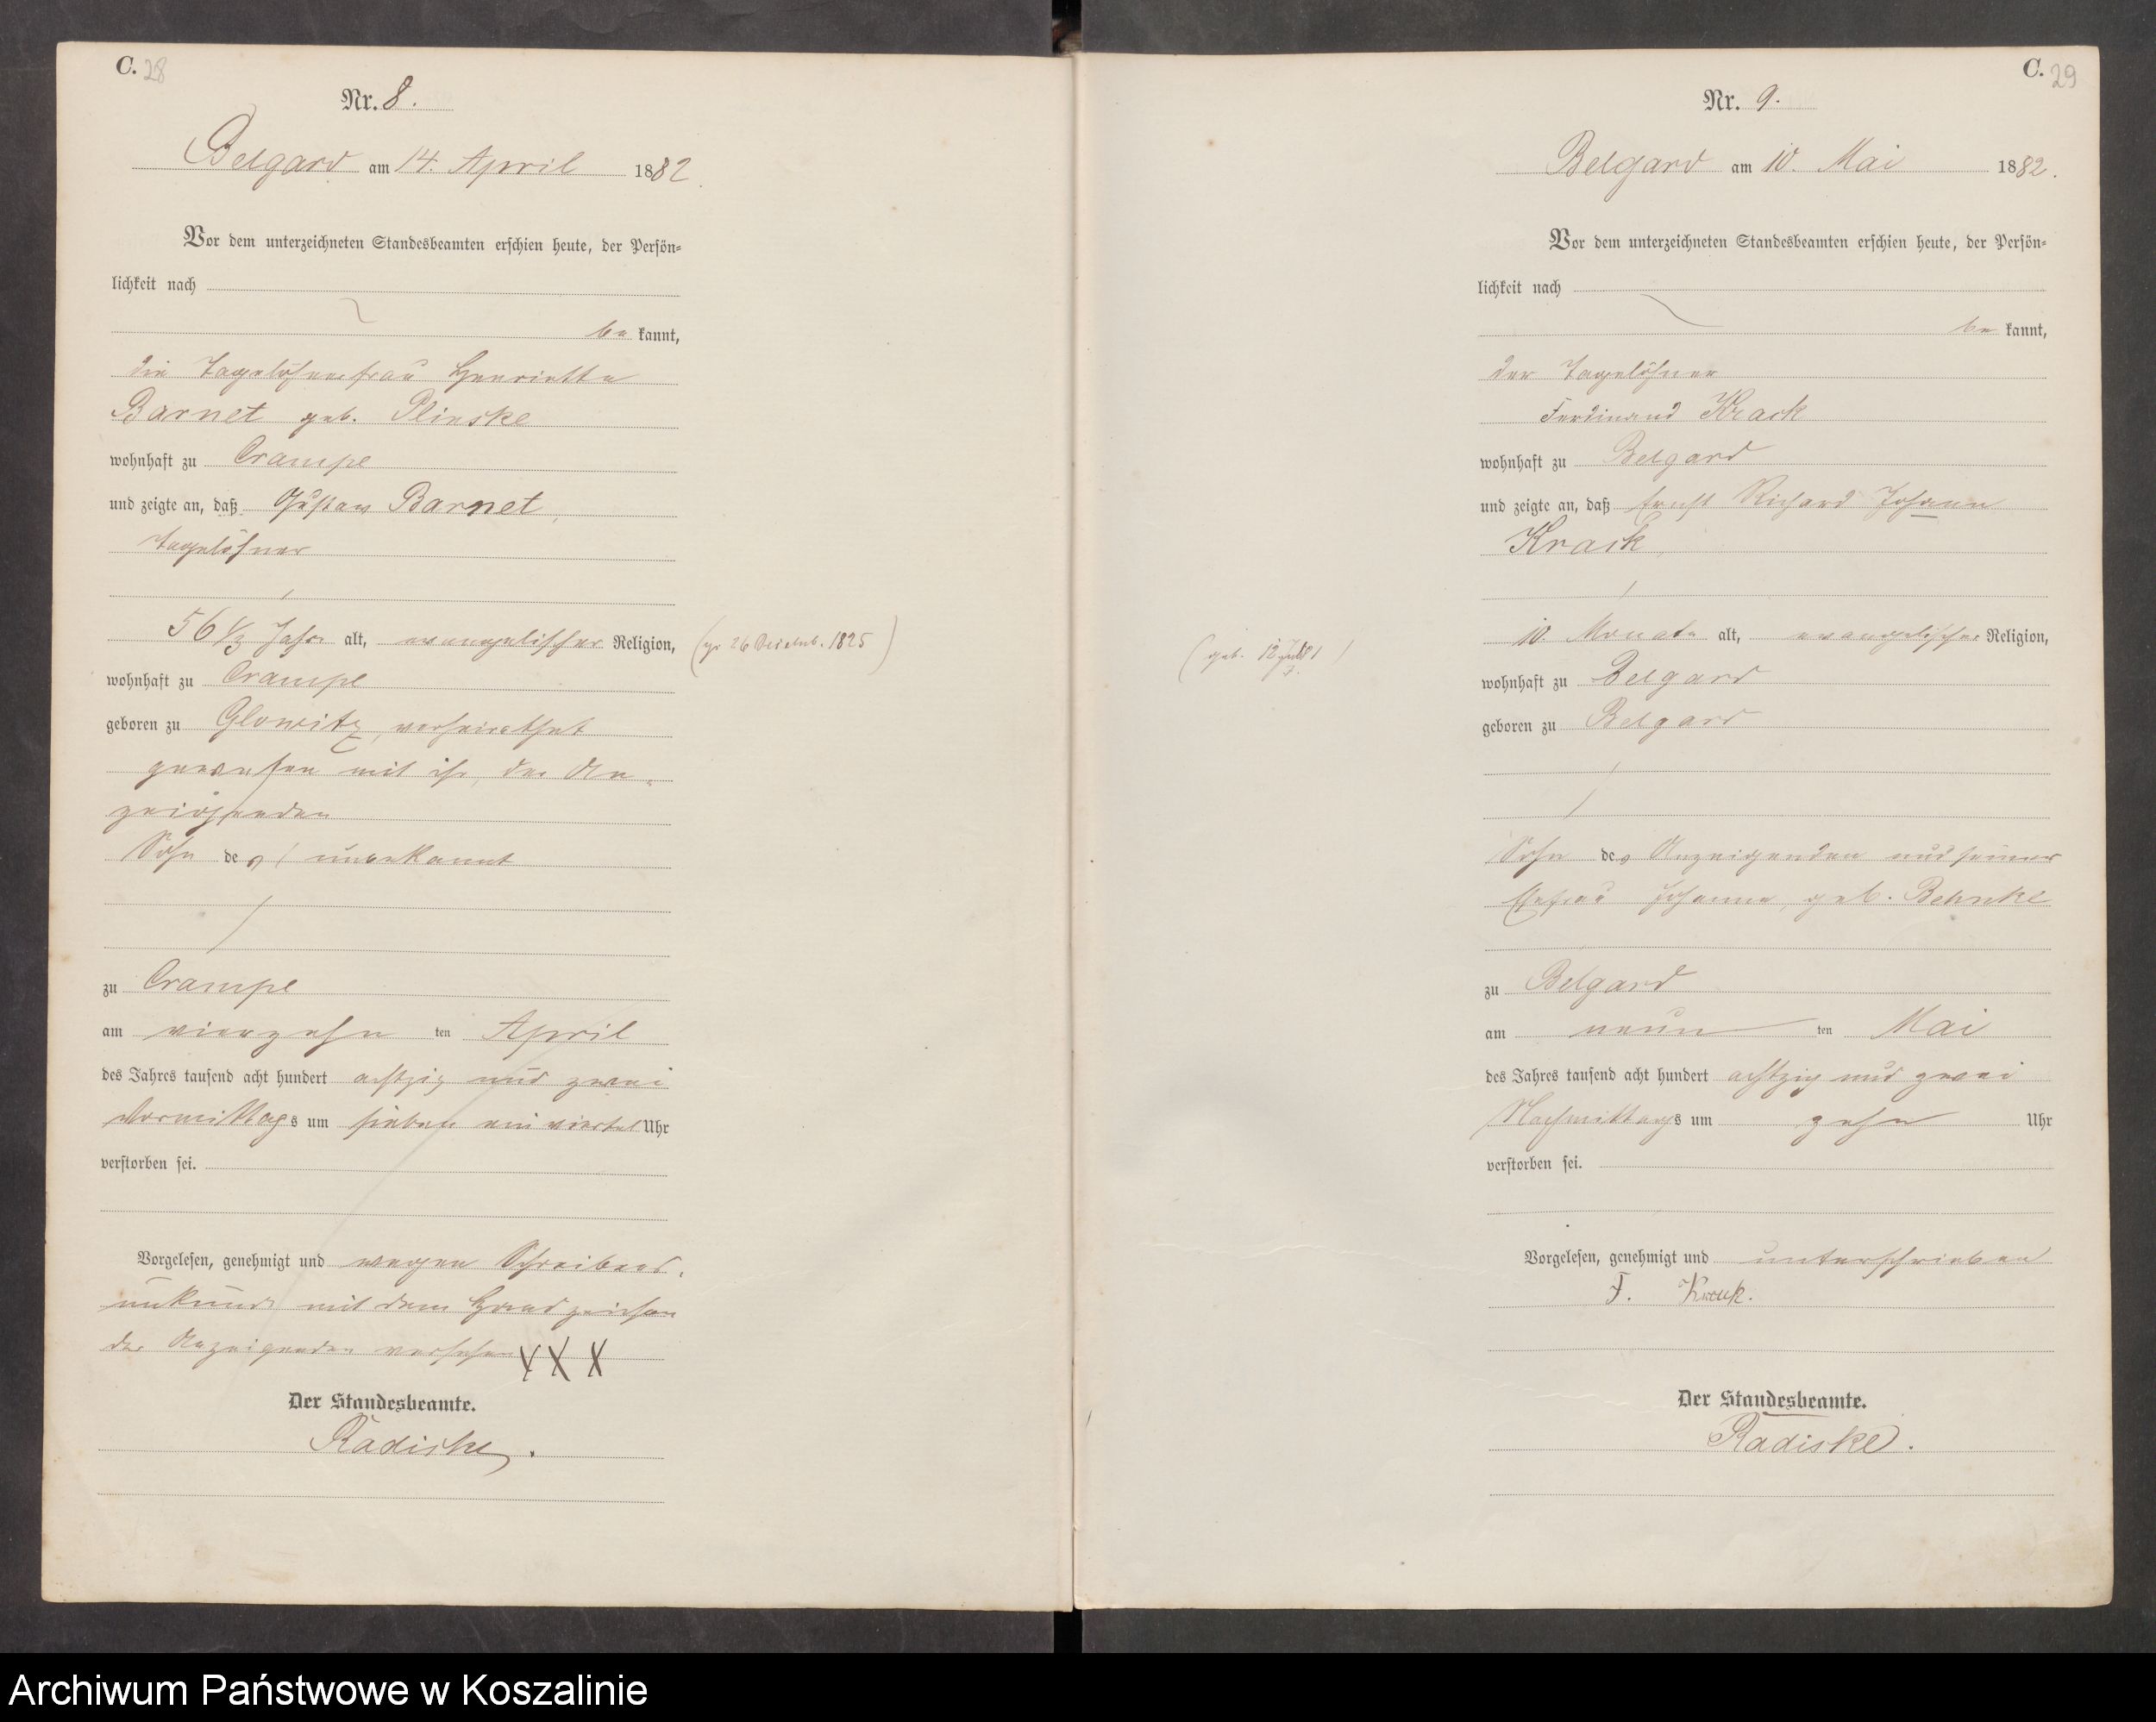 C. 28
Nr. 8.
Belgard am 14. April 1882.
Vor dem unterzeichneten Standesbeamten erschien heute, der Persön-
lichkeit nach
be kannt,
die Tagelöhnerfrau Henriette
Barnet geb. Plinske
wohnhaft zu Crampe
und zeigte an, daß Gustav Barnet,
Tagelöhner
56 1/3 Jahr alt, evangelischer Religion, (26 Decemb. 1825)
wohnhaft zu Crampe
geboren zu Glowitz, verheirathet
gewesen mit ihr, der An-
zeigenden
Sohn des unbekannt
zu Crampe
am vierzehn ten April
des Jahres tausend acht hundert achtzig und zwei
Vormittags um sieben ein viertel Uhr
verstorben sei.
Vorgelesen, genehmigt und wegen Schreibens-
unkunde mit dem Handzeichen
der Anzeigenden versehen XXX
Der Standesbeamte.
Radiske.
C. 29
Nr. 9.
Belgard am 10. Mai 1882.
Vor dem unterzeichneten Standesbeamten erschien heute, der Persön-
lichkeit nach
be kannt,
der Tagelöhner
Ferdinand Krack
wohnhaft zu Belgard
und zeigte an, daß Ernst Richard Johann
Krack,
(geb.
10. Monate alt, evangelischer Religion,
wohnhaft zu Belgard
geboren zu Belgard
Sohn des Anzeigenden und seiner
Ehefrau Johanna, geb. Behnke
zu Belgard
am neun ten Mai
des Jahres tausend acht hundert achtzig und zwei
Nachmittags um zehn Uhr
verstorben sei.
Vorgelesen, genehmigt und unterschrieben
F. Krack.
Der Standesbeamte.
Radiske.
Archiwum Państwowe w Koszalinie